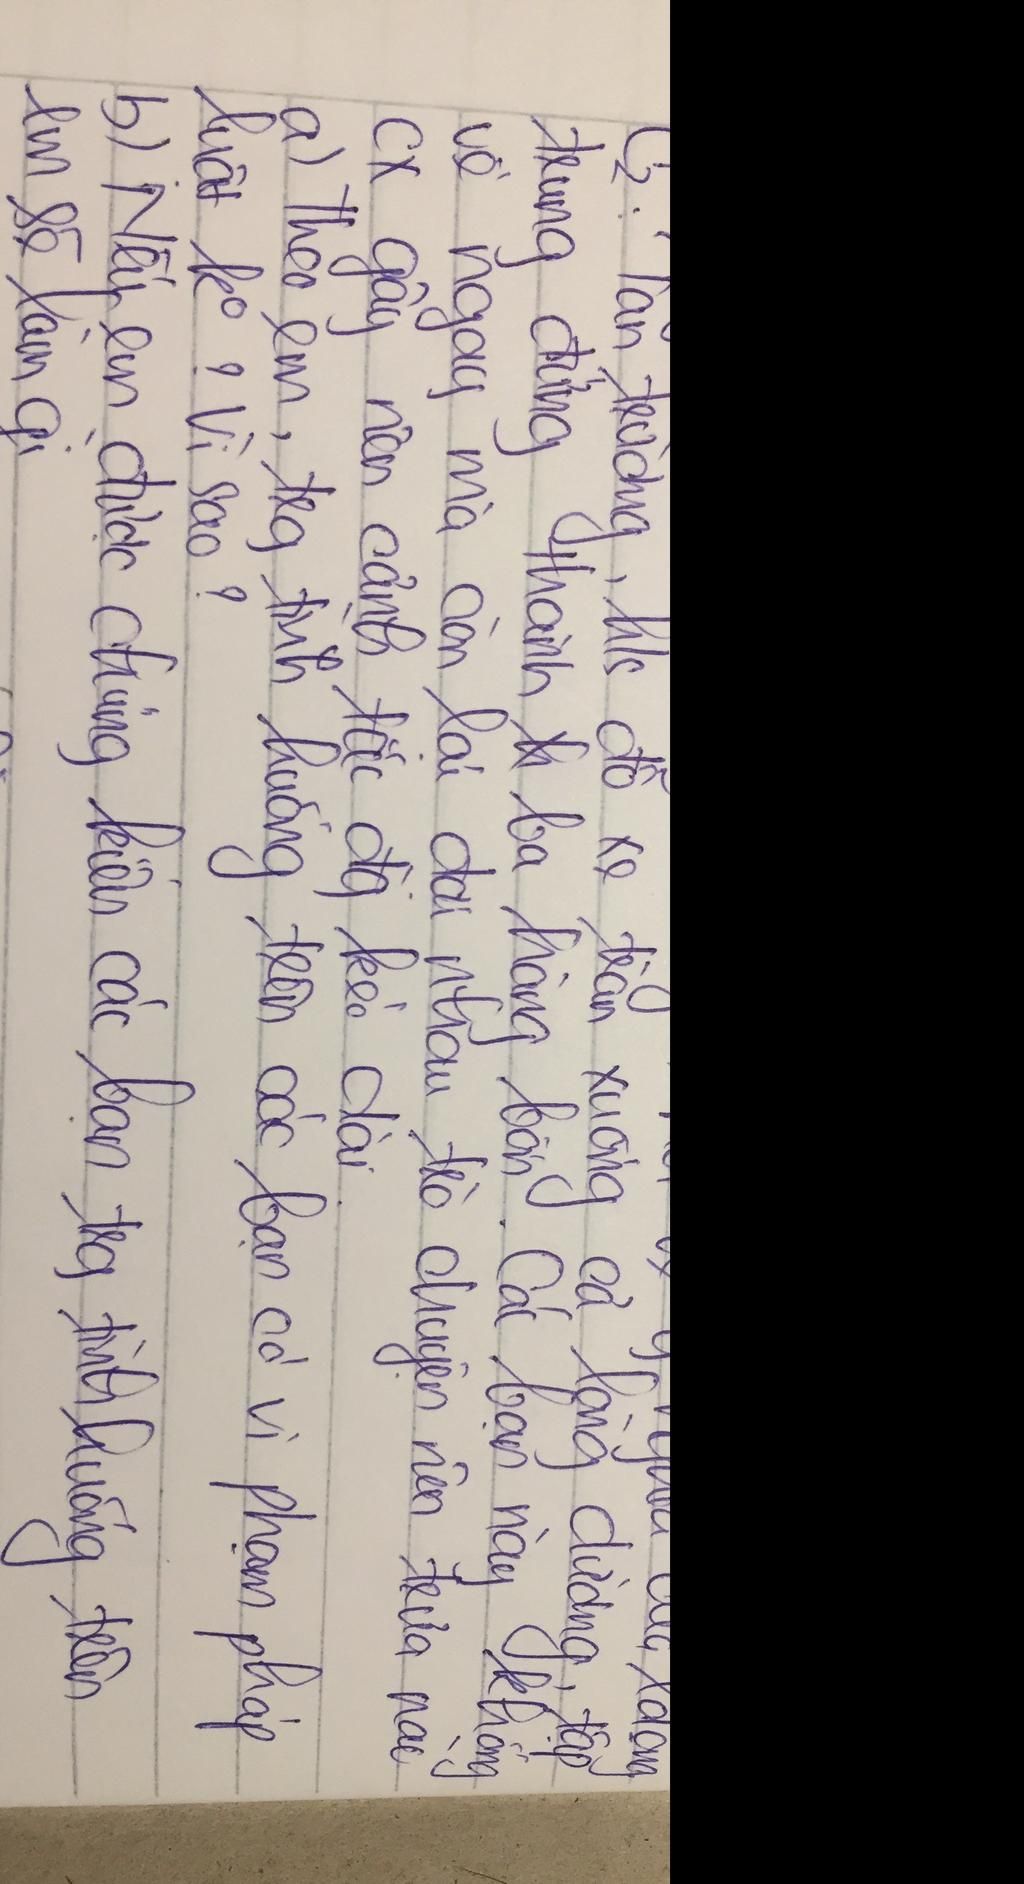 C2: Tan trường, hls đỗ xe tràn xuống cả lòng đường, tập
trung đứng thành ba hàng bốn. Các bạn này không
về ngay mà còn lái dai nhau trò chuyện nên trưa nào
cx gây nên cảnh tắc đg kéo dài.
a) Theo em, trg tình huống trên các bạn có vi phạm pháp
luật ko? Vì sao?
b) Nếu em được chứng kiến các bạn trg tình huống trên
em sẽ làm gì